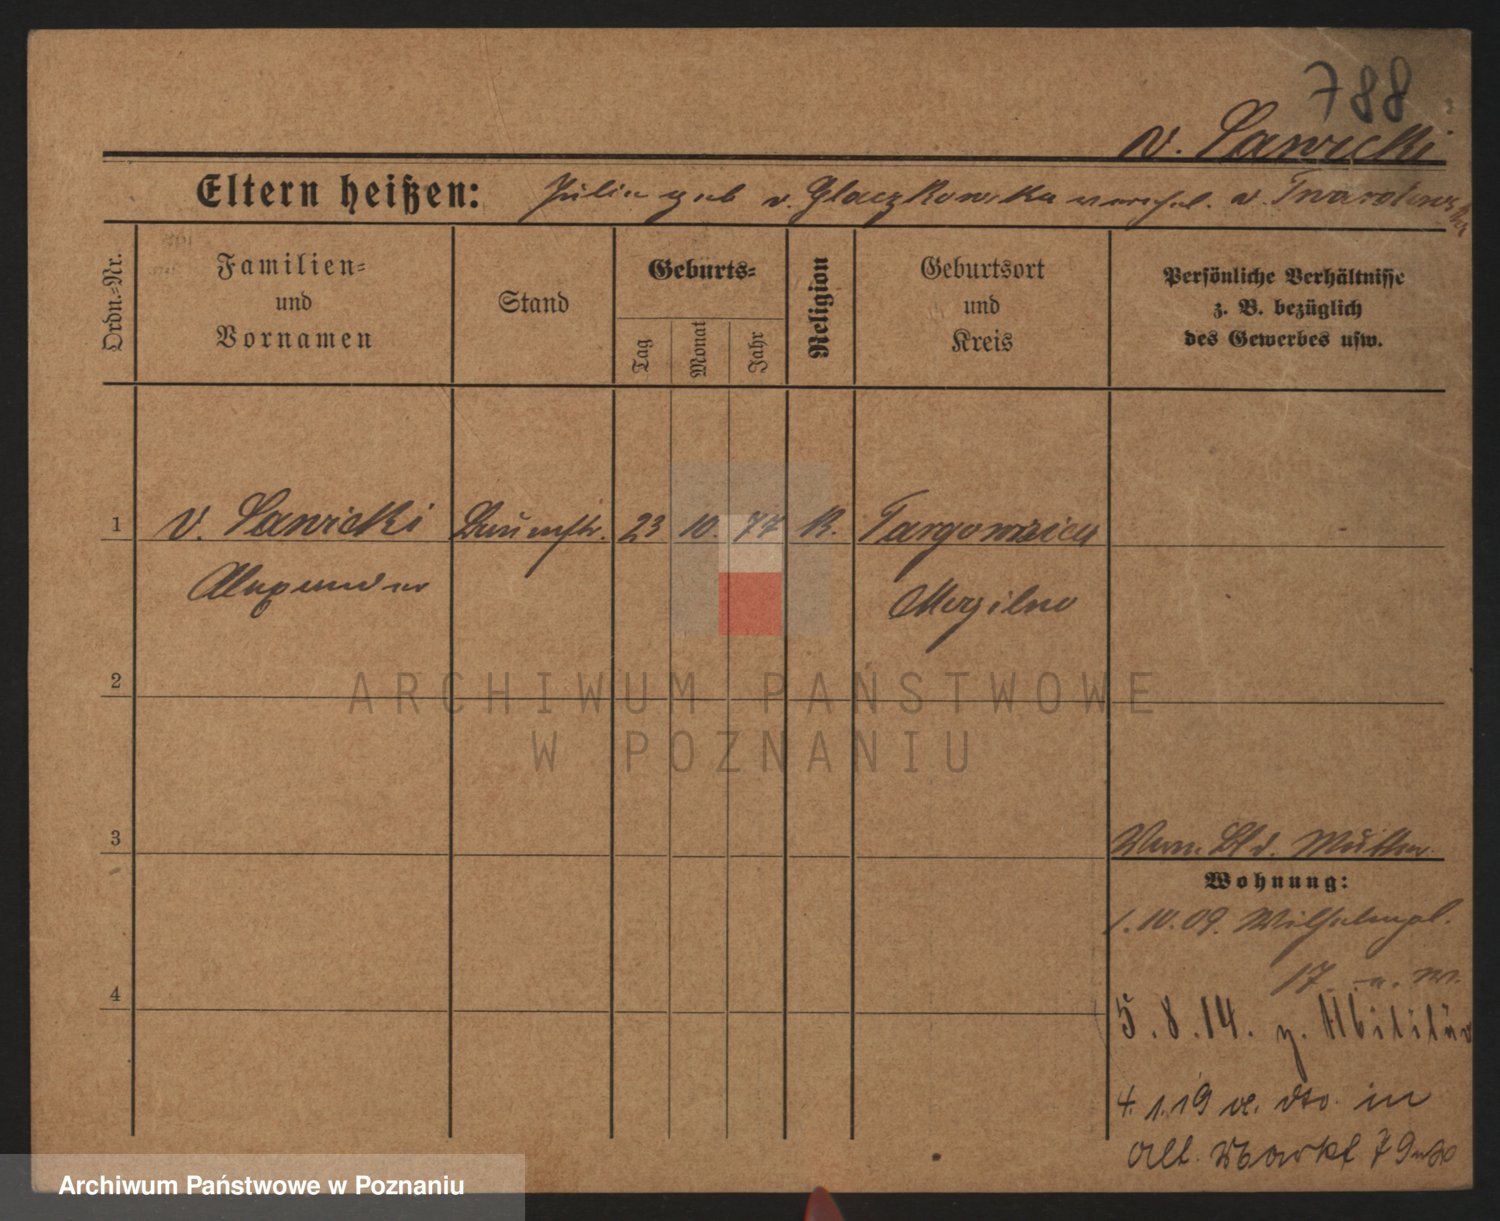 788
v. Sawicki
Eltern heißen: Julie geb v. Glaczkowska verehel. v. Twarowska
Ordn.-Nr.
Familien-
und
Vornamen
Stand
Geburts-
Tag
Monat
Jahr
Religion
Geburtsort
und
Kreis
Persönliche Verhältnisse
z. B. bezüglich
des Gewerbes usw.
1 v. Sawicki Baumstr. 23 10. 77 K. Targownica
Alexander Mogilno
2
ARCHIWUM PAŃSTWOWE
W POZNANIU
3
Bl d. Mutter
Wohnung:
1.10.09. Wilhelmspl.
4
17.
5.8.14. z. Militär
4.1.19 dto in
All. Markt 79
Archiwum Państwowe w Poznaniu